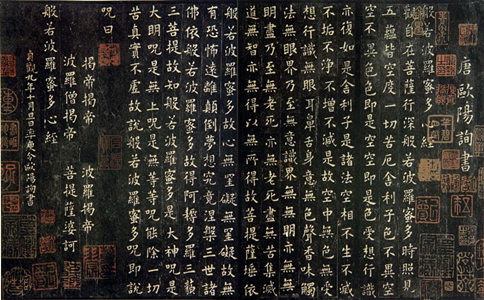 唐歐陽詢書
般若波羅蜜多 經
觀自在菩薩行深般若波羅蜜多時照見
五蘊皆空度一切苦厄舍利子色不異空
空不異色色即是空空即是色受想行識
亦復如是舍利子是諸法空相不生不滅
不垢不淨不增不減是故空中無色無受
想行識無眼耳鼻舌身意無色聲香味觸
法無眼界乃至無意識界無無明亦無無
明盡乃至無老死亦無老死盡無苦集滅
道無智亦無得以無所得故菩提薩埵依
般若波羅蜜多故心無罣礙無罣礙故無
有恐怖遠離顛倒夢想究竟涅槃三世諸
佛依般若波羅蜜多故得阿耨多羅三藐
三菩提故知般若波羅蜜多是大神呪是
大明呪是無上呪是無等等呪能除一切
苦真實不虛故說般若波羅蜜多呪即說
呪曰
揭帝揭帝 波羅揭帝
波羅僧揭帝 菩提薩婆訶
般若波羅蜜多心經
貞觀九年十月旦日率更令歐陽詢書